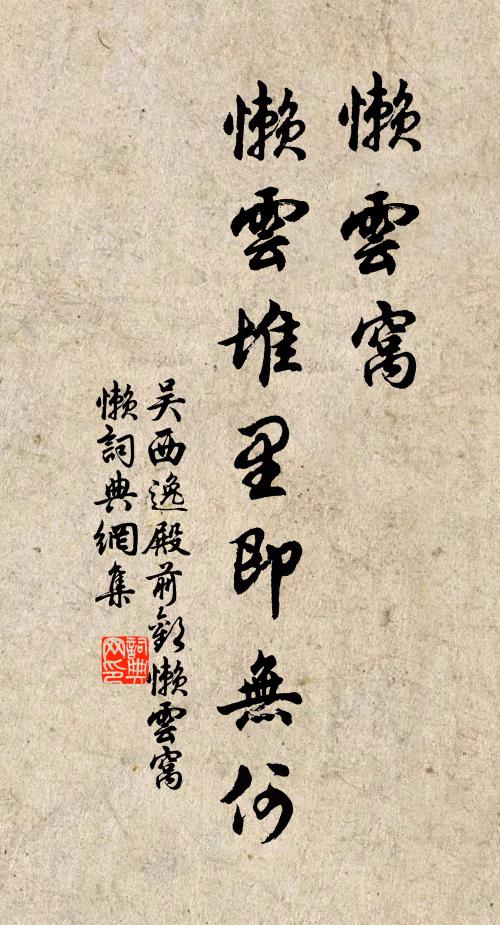 懶雲窩
懶雲堆里即無何
吴西逸殿前歡懶雲窩
懶詞典網集
詞典網印